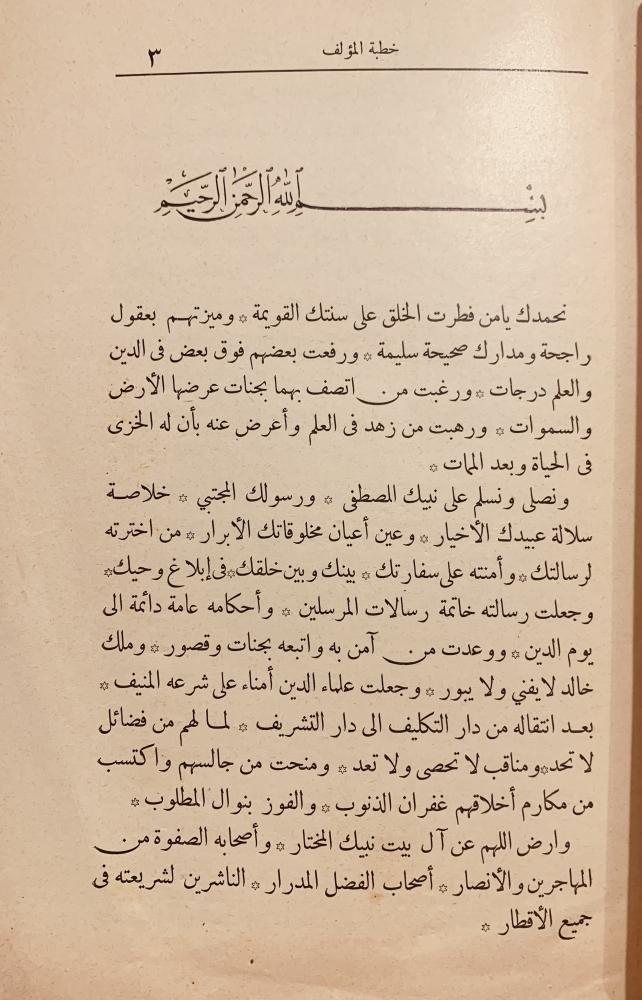 خطبة المؤلف ٣
بسم الله الرحمن الرحيم
نحمدك يامن فطرت الخلق على سنتك القويمة * وميزتهم بعقول
راجحة ومدارك صحيحة سليمة * ورفعت بعضهم فوق بعض فى الدين
والعلم درجات * ورغبت من اتصف بهما بجنات عرضها الأرض
والسموات * ورهبت من زهد فى العلم وأعرض عنه بأن له الخزى
فى الحياة وبعد الممات *
ونصلى ونسلم على نبيك المصطفى * ورسولك المجتبي * خلاصة
سلالة عبيدك الأخيار * وعين أعيان مخلوقاتك الأبرار * من اخترته
لرسالتك * وأمنته على سفارتك * بينك وبين خلقك * فى إبلاغ وحيك *
وجعلت رسالته خاتمة رسالات المرسلين * وأحكامه عامة دائمة الى
يوم الدين * ووعدت من آمن به واتبعه بجنات وقصور * وملك
خالد لايفني ولا يبور * وجعلت علماء الدين أمناء على شرعه المنيف *
بعد انتقاله من دار التكليف الى دار التشريف * لما لهم من فضائل
لا تحد * ومناقب لا تحصى ولا تعد * ومنحت من جالسهم واكتسب
من مكارم أخلاقهم غفران الذنوب * والفوز بنوال المطلوب *
وارض اللهم عن آل بيت نبيك المختار * وأصحابه الصفوة من
المهاجرين والأنصار * أصحاب الفضل المدرار * الناشرين لشريعته فى
جميع الأقطار *